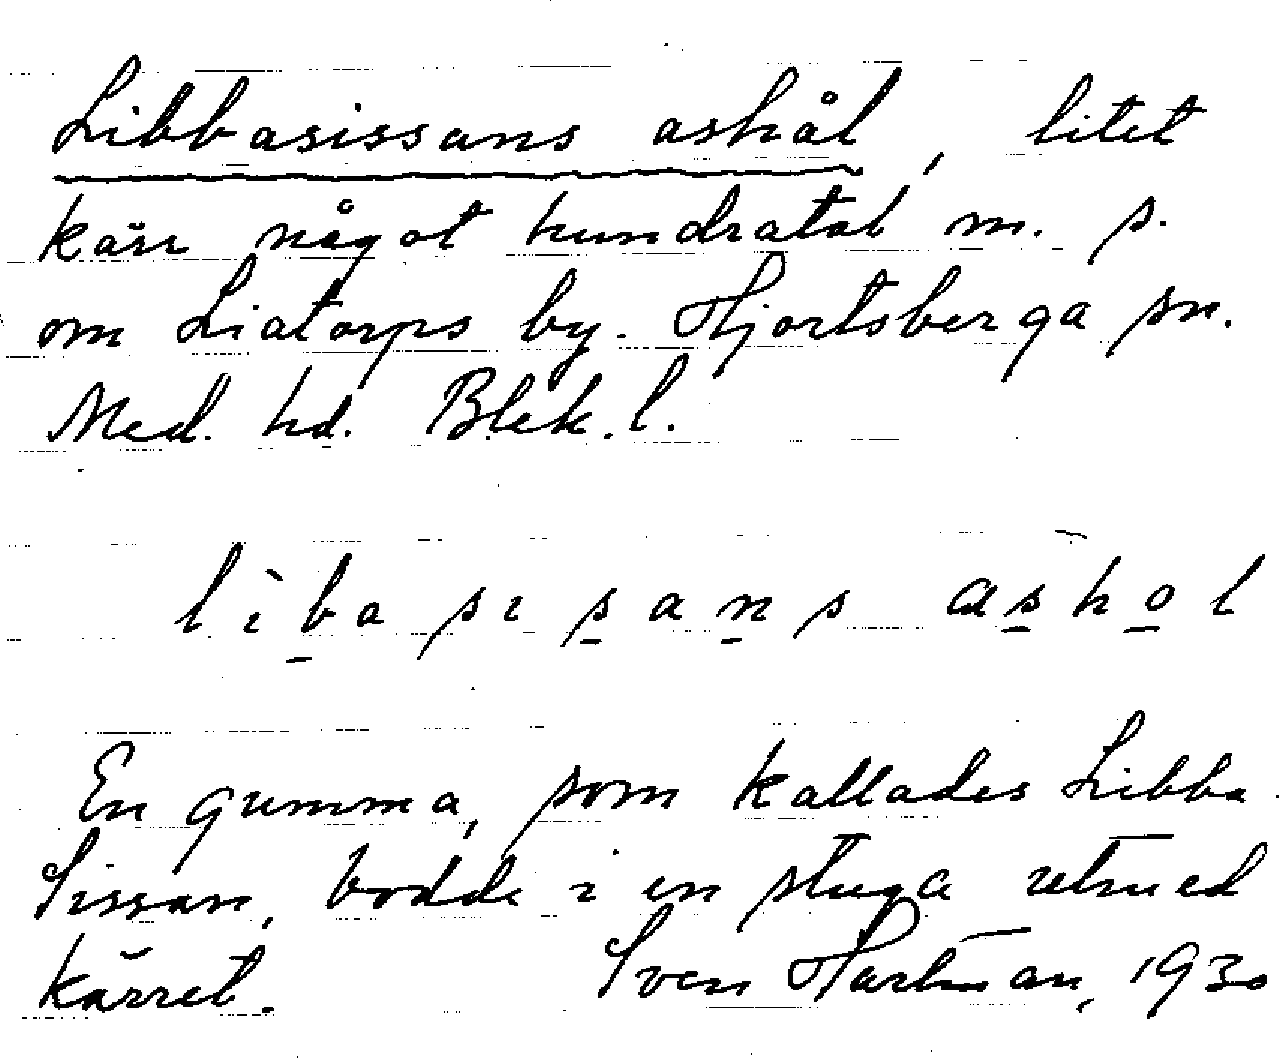 Libbasissans ashål, litet
kärr något hundratal m. s.
om Liatorps by. Hjortsberga sn.
Med. hd. Blek. l.
lìba sisans ashol
En gumma, som kallades Libba-
Sissan, bodde i en stuga utmed
kärret. Sven Hartman, 1930